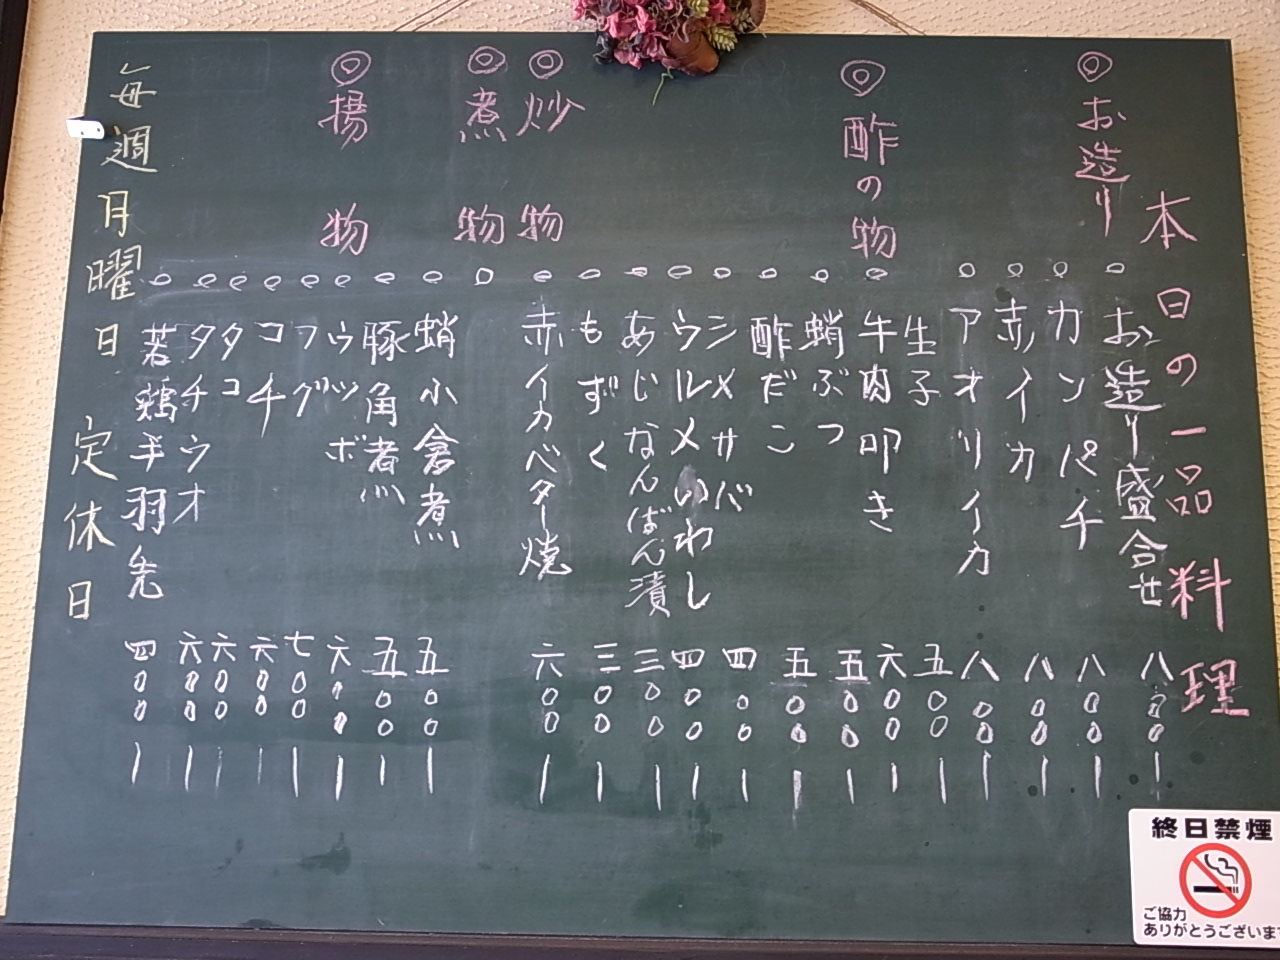 本日の一品料理
◎お造り
お造り盛合せ 八〇〇ー
カンパチ 八〇〇ー
赤イカ 八〇〇ー
アオリイカ 八〇〇ー
◎酢の物
生子 五〇〇ー
牛肉叩き 六〇〇ー
蛸ぶつ 五〇〇ー
酢だこ 五〇〇ー
シメサバ 四〇〇ー
ウルメいわし 四〇〇ー
あじなんばん漬 三〇〇ー
もずく 三〇〇ー
◎炒物
赤イカベター焼 六〇〇ー
◎煮物
蛸小倉煮 五〇〇ー
豚角煮 五〇〇ー
◎揚物
ウツボ 六〇〇ー
フグ 七〇〇ー
コチ 六〇〇ー
タコ 六〇〇ー
タチウオ 六〇〇ー
若鶏半羽先 四〇〇ー
毎週月曜日 定休日
終日禁煙
ご協力
ありがとうございます